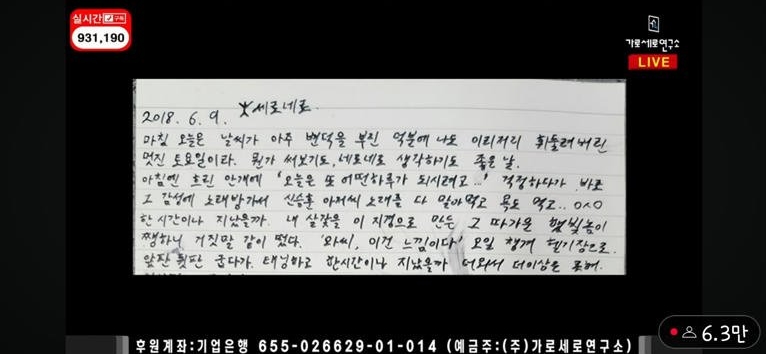 실시간 구독
931,190
가로세로연구소
LIVE
2018. 6. 9. 세로네로
마침 오늘은 날씨가 아주 변덕을 부린 덕분에 나도 이리저리 휘둘려버린
멋진 토요일이라. 뭔가 써보기도, 네로네로 생각하기도 좋은 날.
아침엔 흐린 안개에 '오늘은 또 어떤하루가 되시려고...' 걱정하다가 바로
그 감성에 노래방가서 신승훈 아저씨 노래를 다 말아먹고 욕도 먹고..
한 시간이나 지났을까. 내 살갗을 이 지경으로 만든 그 따가운 햇빛놈이
쨍하니 거짓말 같이 떴다. '와씨, 이건 느낌이다' 오일 챙겨 헬기장으로.
앞판 뒷판 굽다가. 태닝하고 한시간이나 지났을까 더와서 더이상은 못해.
6.3만
후원계좌:기업은행 655-026629-01-014 (예금주:(주)가로세로연구소)